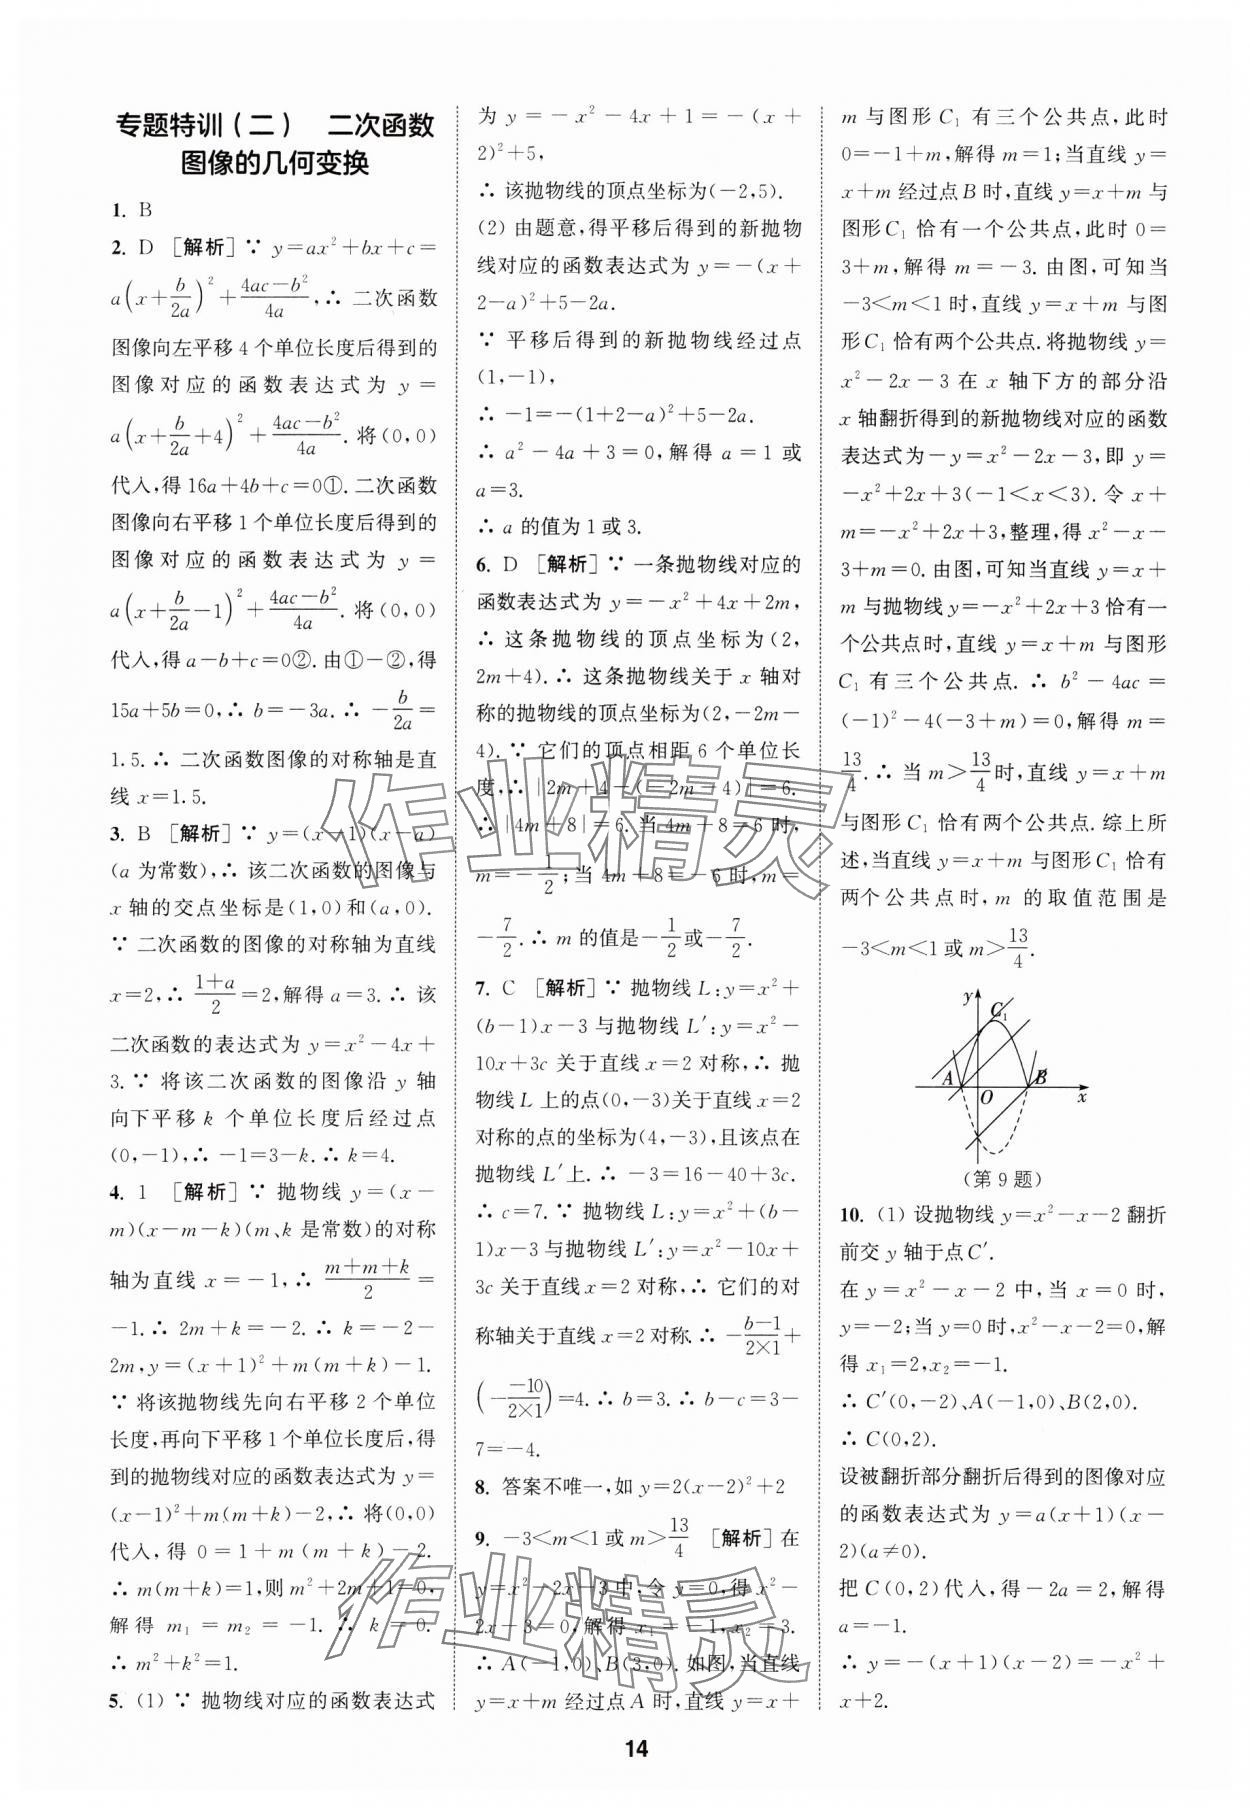 专题特训(二) 二次函数
图像的几何变换
1. B
2. D [解析]∵ y=ax²+bx+c=
a(x+b/2a)²+(4ac-b²)/4a,∴ 二次函数
图像向左平移 4 个单位长度后得到的
图像对应的函数表达式为 y=
a(x+b/2a+4)²+(4ac-b²)/4a. 将(0,0)
代入,得 16a+4b+c=0①. 二次函数
图像向右平移 1 个单位长度后得到的
图像对应的函数表达式为 y=
a(x+b/2a-1)²+(4ac-b²)/4a. 将(0,0)
代入,得 a-b+c=0②. 由①-②,得
15a+5b=0,∴ b=-3a. ∴ -b/2a=
1.5. ∴ 二次函数图像的对称轴是直
线 x=1.5.
3. B [解析]∵ y=(x-1)(x-a)
(a 为常数),∴ 该二次函数的图像与
x 轴的交点坐标是(1,0)和(a,0).
∵ 二次函数的图像的对称轴为直线
x=2,∴ (1+a)/2=2,解得 a=3. ∴ 该
二次函数的表达式为 y=x²-4x+
3. ∵ 将该二次函数的图像沿 y 轴
向下平移 k 个单位长度后经过点
(0,-1),∴ -1=3-k. ∴ k=4.
4. 1 [解析]∵ 抛物线 y=(x-
m)(x-m-k)(m、k 是常数)的对称
轴为直线 x=-1,∴ (m+m+k)/2=
-1. ∴ 2m+k=-2. ∴ k=-2-
2m,y=(x+1)²+m(m+k)-1.
∵ 将该抛物线先向右平移 2 个单位
长度,再向下平移 1 个单位长度后,得
到的抛物线对应的函数表达式为 y=
(x-1)²+m(m+k)-2,∴ 将(0,0)
代入,得 0=1+m(m+k)-2.
∴ m(m+k)=1,则 m²+2m+1=0,
解得 m₁=m₂=-1. ∴ k=0.
∴ m²+k²=1.
5. (1) ∵ 抛物线对应的函数表达式
为 y=-x²-4x+1=-(x+
2)²+5,
∴ 该抛物线的顶点坐标为(-2,5).
(2) 由题意,得平移后得到的新抛物
线对应的函数表达式为 y=-(x+
2-a)²+5-2a.
∵ 平移后得到的新抛物线经过点
(1,-1),
∴ -1=-(1+2-a)²+5-2a.
∴ a²-4a+3=0,解得 a=1 或
a=3.
∴ a 的值为 1 或 3.
6. D [解析]∵ 一条抛物线对应的
函数表达式为 y=-x²+4x+2m,
∴ 这条抛物线的顶点坐标为(2,
2m+4). ∴ 这条抛物线关于 x 轴对
称的抛物线的顶点坐标为(2,-2m-
4). ∵ 它们的顶点相距 6 个单位长
度,∴ |2m+4-(-2m-4)|=6.
∴ |4m+8|=6. 当 4m+8=6 时,
m=-1/2;当 4m+8=-6 时,m=
-7/2. ∴ m 的值是-1/2或-7/2.
7. C [解析]∵ 抛物线 L:y=x²+
(b-1)x-3 与抛物线 L′:y=x²-
10x+3c 关于直线 x=2 对称,∴ 抛
物线 L 上的点(0,-3)关于直线 x=2
对称的点的坐标为(4,-3),且该点在
抛物线 L′上. ∴ -3=16-40+3c.
∴ c=7. ∵ 抛物线 L:y=x²+(b-
1)x-3 与抛物线 L′:y=x²-10x+
3c 关于直线 x=2 对称,∴ 它们的对
称轴关于直线 x=2 对称. ∴ -(b-1)/(2×1)+
(-(-10)/(2×1))=4. ∴ b=3. ∴ b-c=3-
7=-4.
8. 答案不唯一,如 y=2(x-2)²+2
9. -3<m<1 或 m>13/4 [解析]在
y=x²-2x-3 中,令 y=0,得 x²-
2x-3=0,解得 x₁=-1,x₂=3.
∴ A(-1,0)、B(3,0). 如图,当直线
y=x+m 经过点 A 时,直线 y=x+
m 与图形 C₁ 有三个公共点,此时
0=-1+m,解得 m=1;当直线 y=
x+m 经过点 B 时,直线 y=x+m 与
图形 C₁ 恰有一个公共点,此时 0=
3+m,解得 m=-3. 由图,可知当
-3<m<1 时,直线 y=x+m 与图
形 C₁ 恰有两个公共点. 将抛物线 y=
x²-2x-3 在 x 轴下方的部分沿
x 轴翻折得到的新抛物线对应的函数
表达式为-y=x²-2x-3,即 y=
-x²+2x+3(-1<x<3). 令 x+
m=-x²+2x+3,整理,得 x²-x-
3+m=0. 由图,可知当直线 y=x+
m 与抛物线 y=-x²+2x+3 恰有一
个公共点时,直线 y=x+m 与图形
C₁ 有三个公共点. ∴ b²-4ac=
(-1)²-4(-3+m)=0,解得 m=
13/4. ∴ 当 m>13/4时,直线 y=x+m
与图形 C₁ 恰有两个公共点. 综上所
述,当直线 y=x+m 与图形 C₁ 恰有
两个公共点时,m 的取值范围是
-3<m<1 或 m>13/4.
y
C₁
A
B
O
x
(第 9 题)
10. (1) 设抛物线 y=x²-x-2 翻折
前交 y 轴于点 C′.
在 y=x²-x-2 中,当 x=0 时,
y=-2;当 y=0时,x²-x-2=0,解
得 x₁=2,x₂=-1.
∴ C′(0,-2)、A(-1,0)、B(2,0).
∴ C(0,2).
设被翻折部分翻折后得到的图像对应
的函数表达式为 y=a(x+1)(x-
2)(a≠0).
把 C(0,2)代入,得-2a=2,解得
a=-1.
∴ y=-(x+1)(x-2)=-x²+
x+2.
作业精灵
作业精灵
14